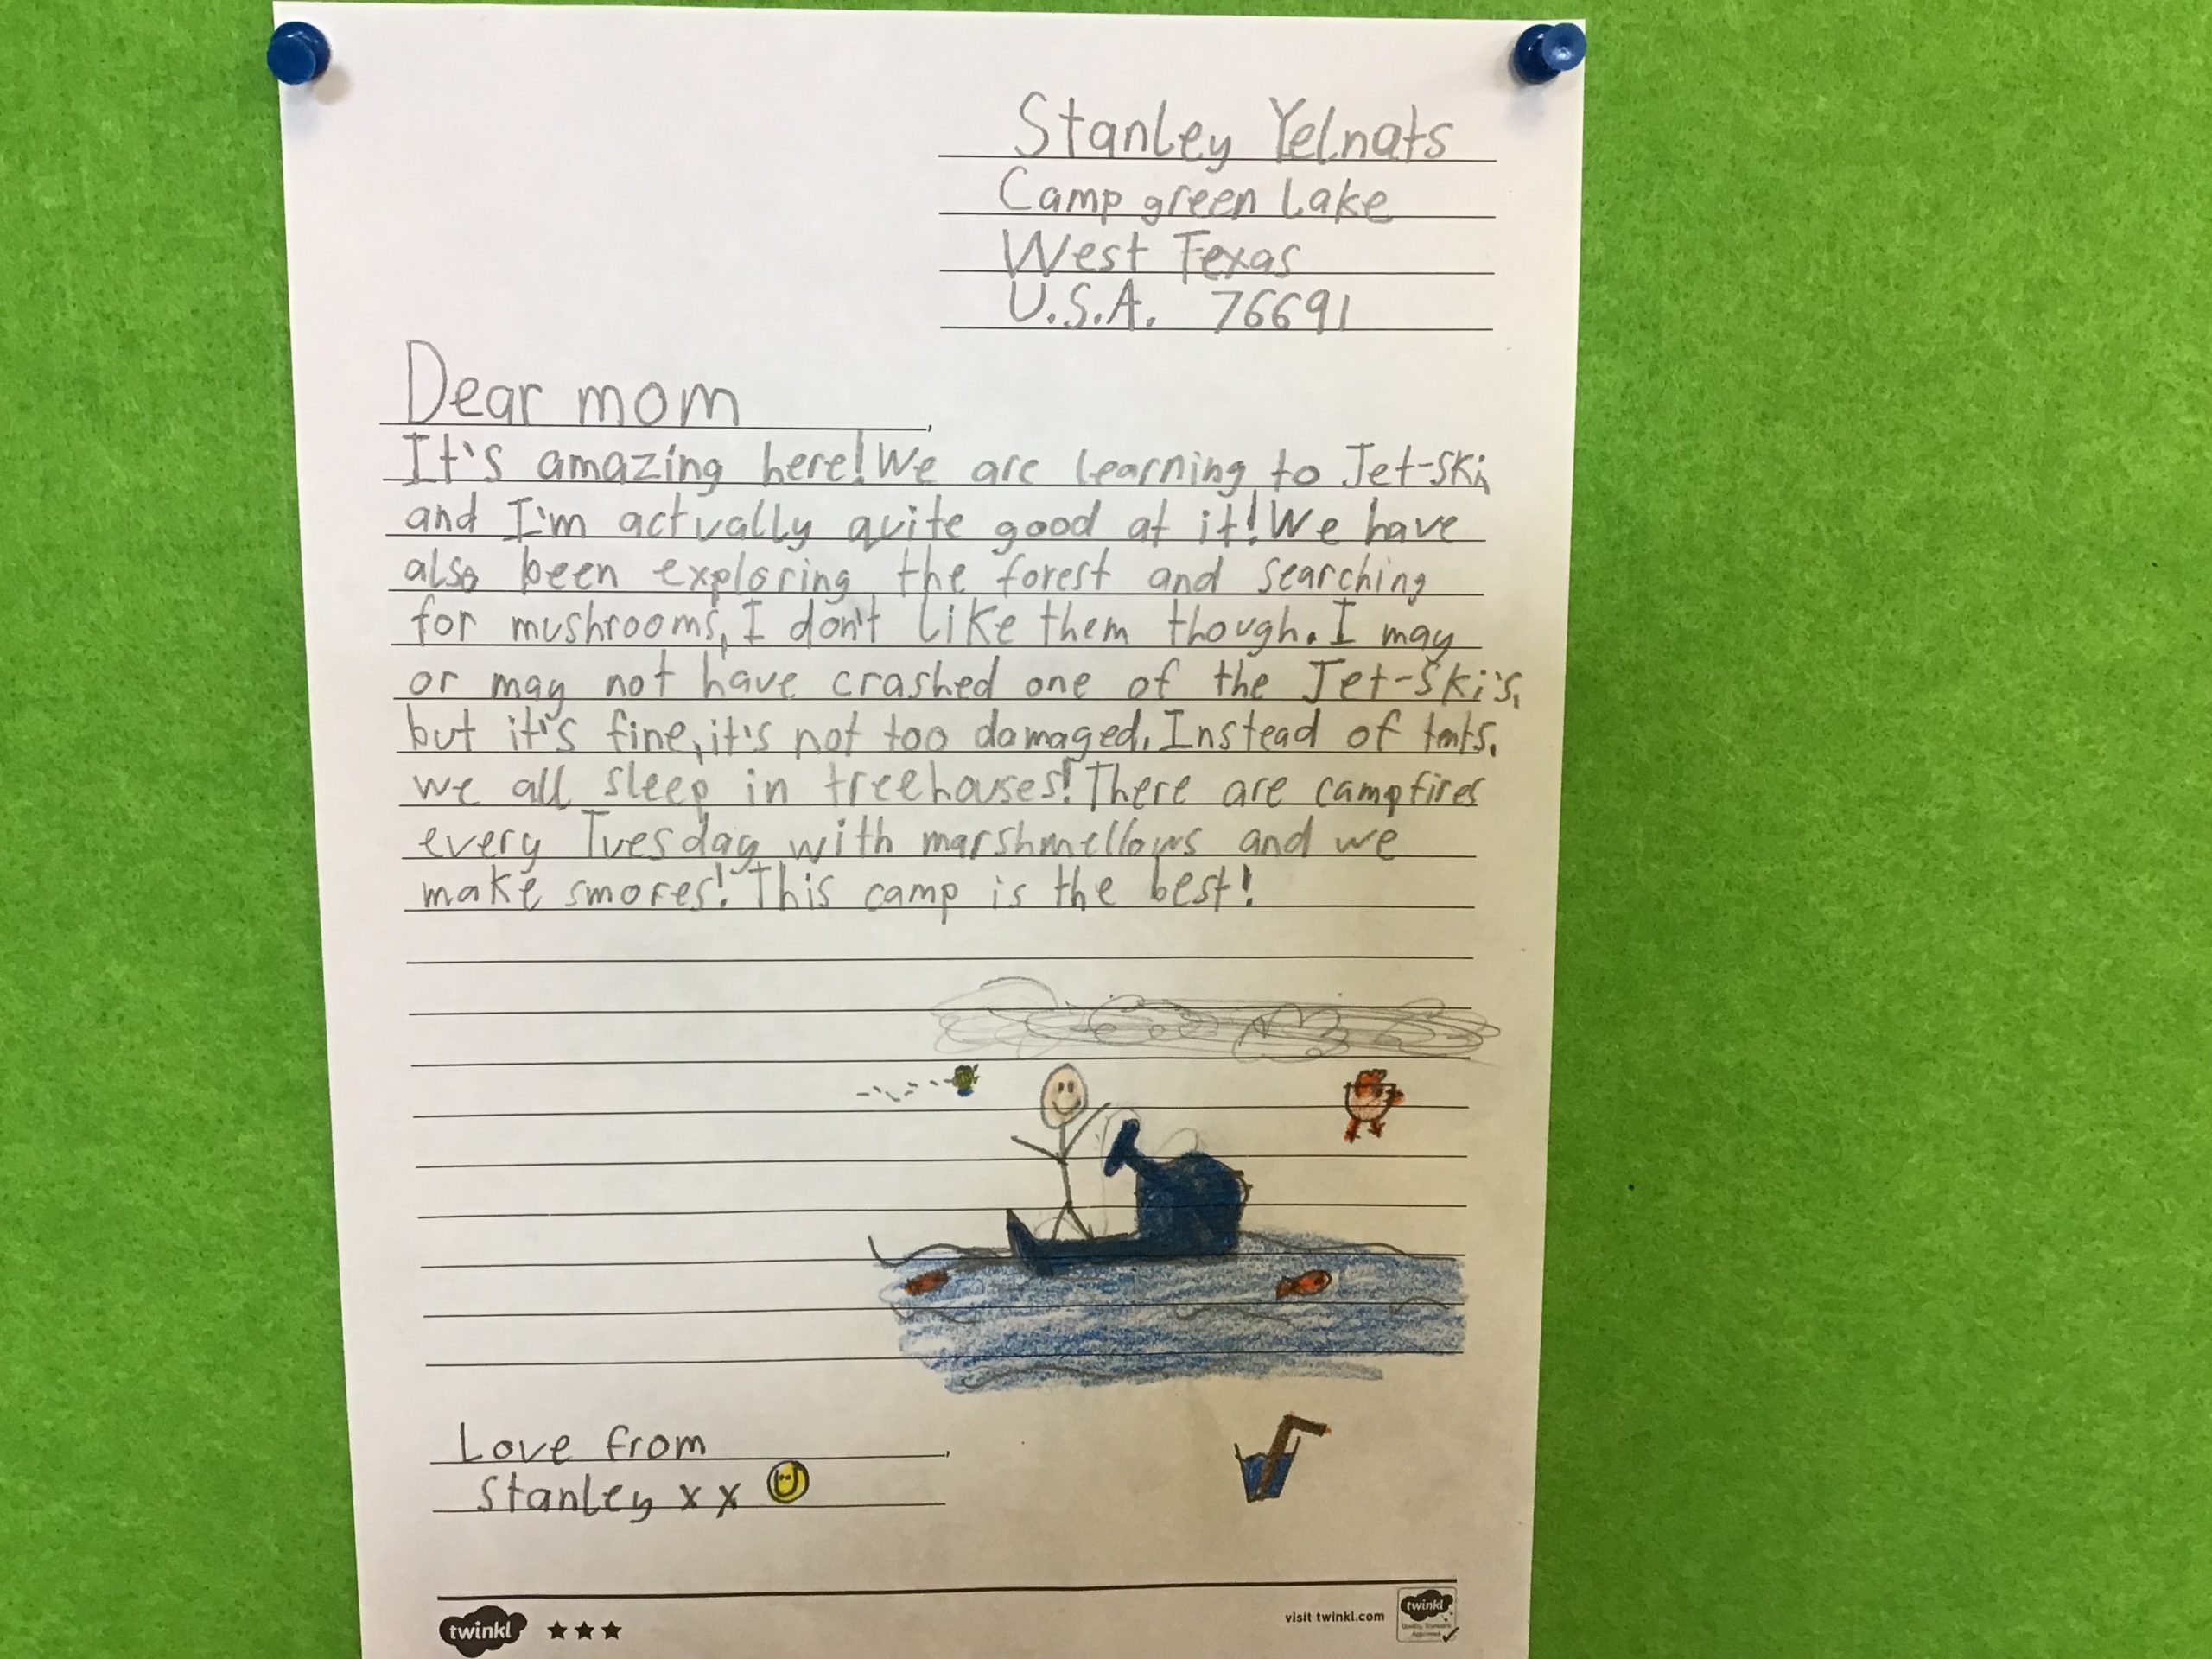 Stanley Yelnats
Camp green Lake
West Texas
U.S.A. 76691
Dear mom,
It's amazing here! We are learning to Jet-Ski,
and I'm actually quite good at it! We have
also been exploring the forest and searching
for mushrooms, I don't like them though. I may
or may not have crashed one of the Jet-Ski's,
but it's fine, it's not too damaged. Instead of tents,
we all sleep in treehouses! There are campfires
every Tuesday with marshmellows and we
make smores! This camp is the best!
Love from,
Stanley x x
twinkl
visit twinkl.com
twinkl
Quality Standard
Approved